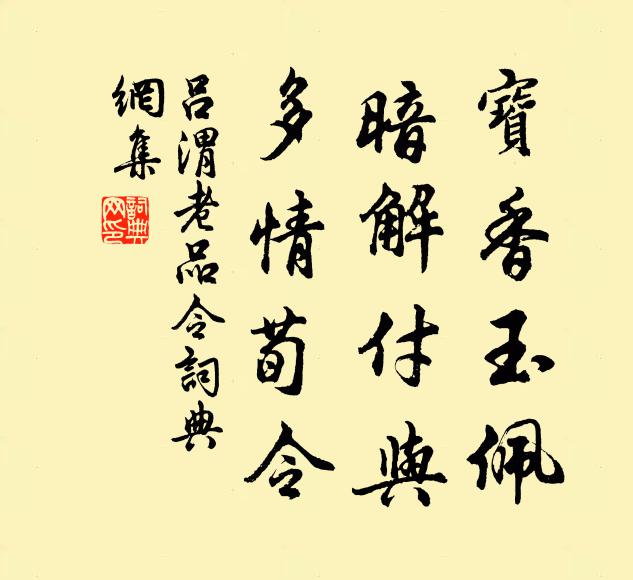 寶香玉佩
暗解付與
多情荀令
呂渭老品令詞典
網集
詞典網印